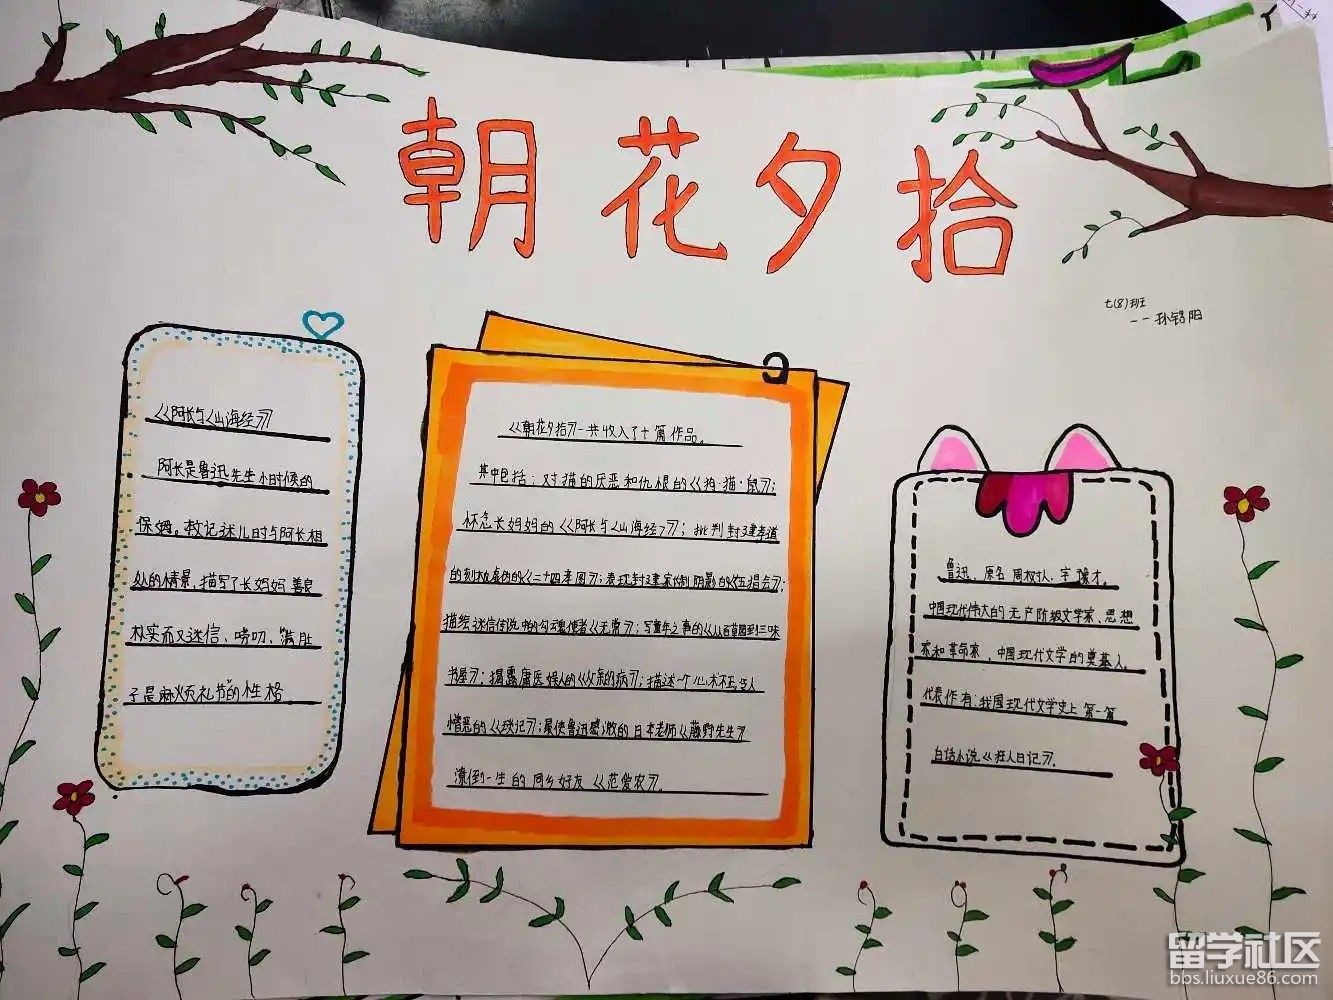 朝花夕拾
七(8)班
——孙铭阳
《阿长与《山海经》》
阿长是鲁迅先生小时候的
保姆。救记述儿时与阿长相
处的情景,描写了长妈妈善良
朴实而又迷信、唠叨、"满肚
子是麻烦礼节"的性格
《朝花夕拾》一共收入了十篇作品。
其中包括:对猫的厌恶和仇恨的《狗·猫·鼠》;
怀念长妈妈的《阿长与《山海经》》;批判封建孝道
的刻板虚伪的《二十四孝图》;表现封建家长制阴影的《五猖会》;
描绘迷信传说中的勾魂使者《无常》;写童年之事的《从百草园到三味
书屋》;揭露庸医误人的《父亲的病》;描述一个心术不正令人
憎恶的《琐记》;最使鲁迅感激的日本老师《藤野先生》
潦倒一生的同乡好友《范爱农》。
鲁迅、原名周树人,字豫才。
中国现代伟大的无产阶级文学家、思想
家和革命家,中国现代文学的奠基人。
代表作有:我国现代文学史上第一篇
白话小说《狂人日记》。
留学社区
bbs.liuxue86.com